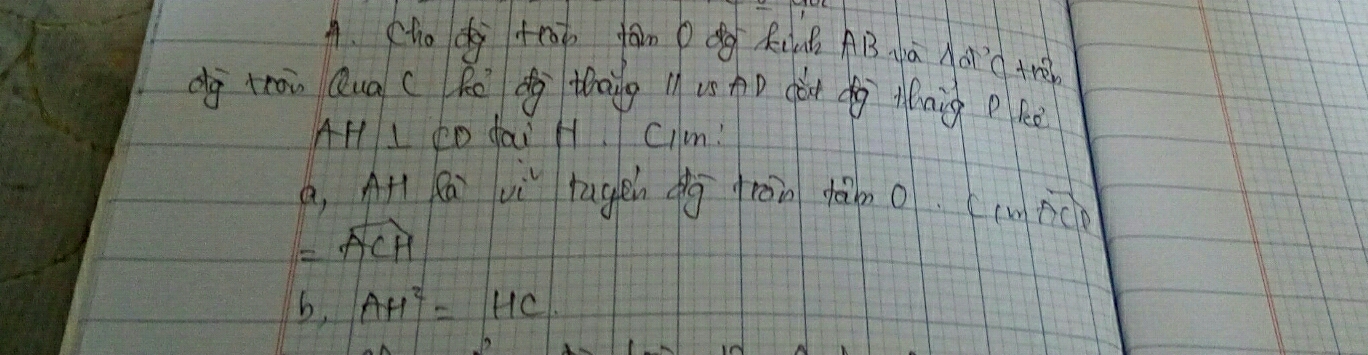 1. Cho đg tròn tâm O đg kính AB và d d'C trên
đg tròn Qua C kẻ đg thẳng // vs AD cắt đg thẳng D kẻ
AH ⊥ CD tại H. C/m:
a, AH là vi tuyến đg tròn tâm O. C/m ACD
= ACH
b, AH² = HC.